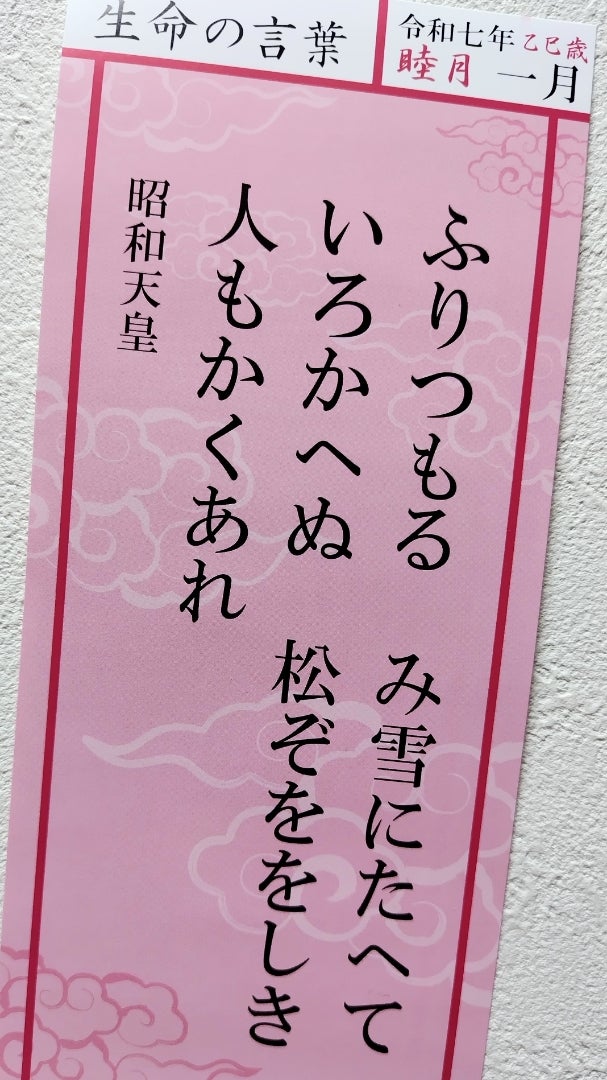 生命の言葉
令和七年 乙巳歳
睦月 一月
ふりつもる み雪にたへて
いろかへぬ 松ぞををしき
人もかくあれ
昭和天皇